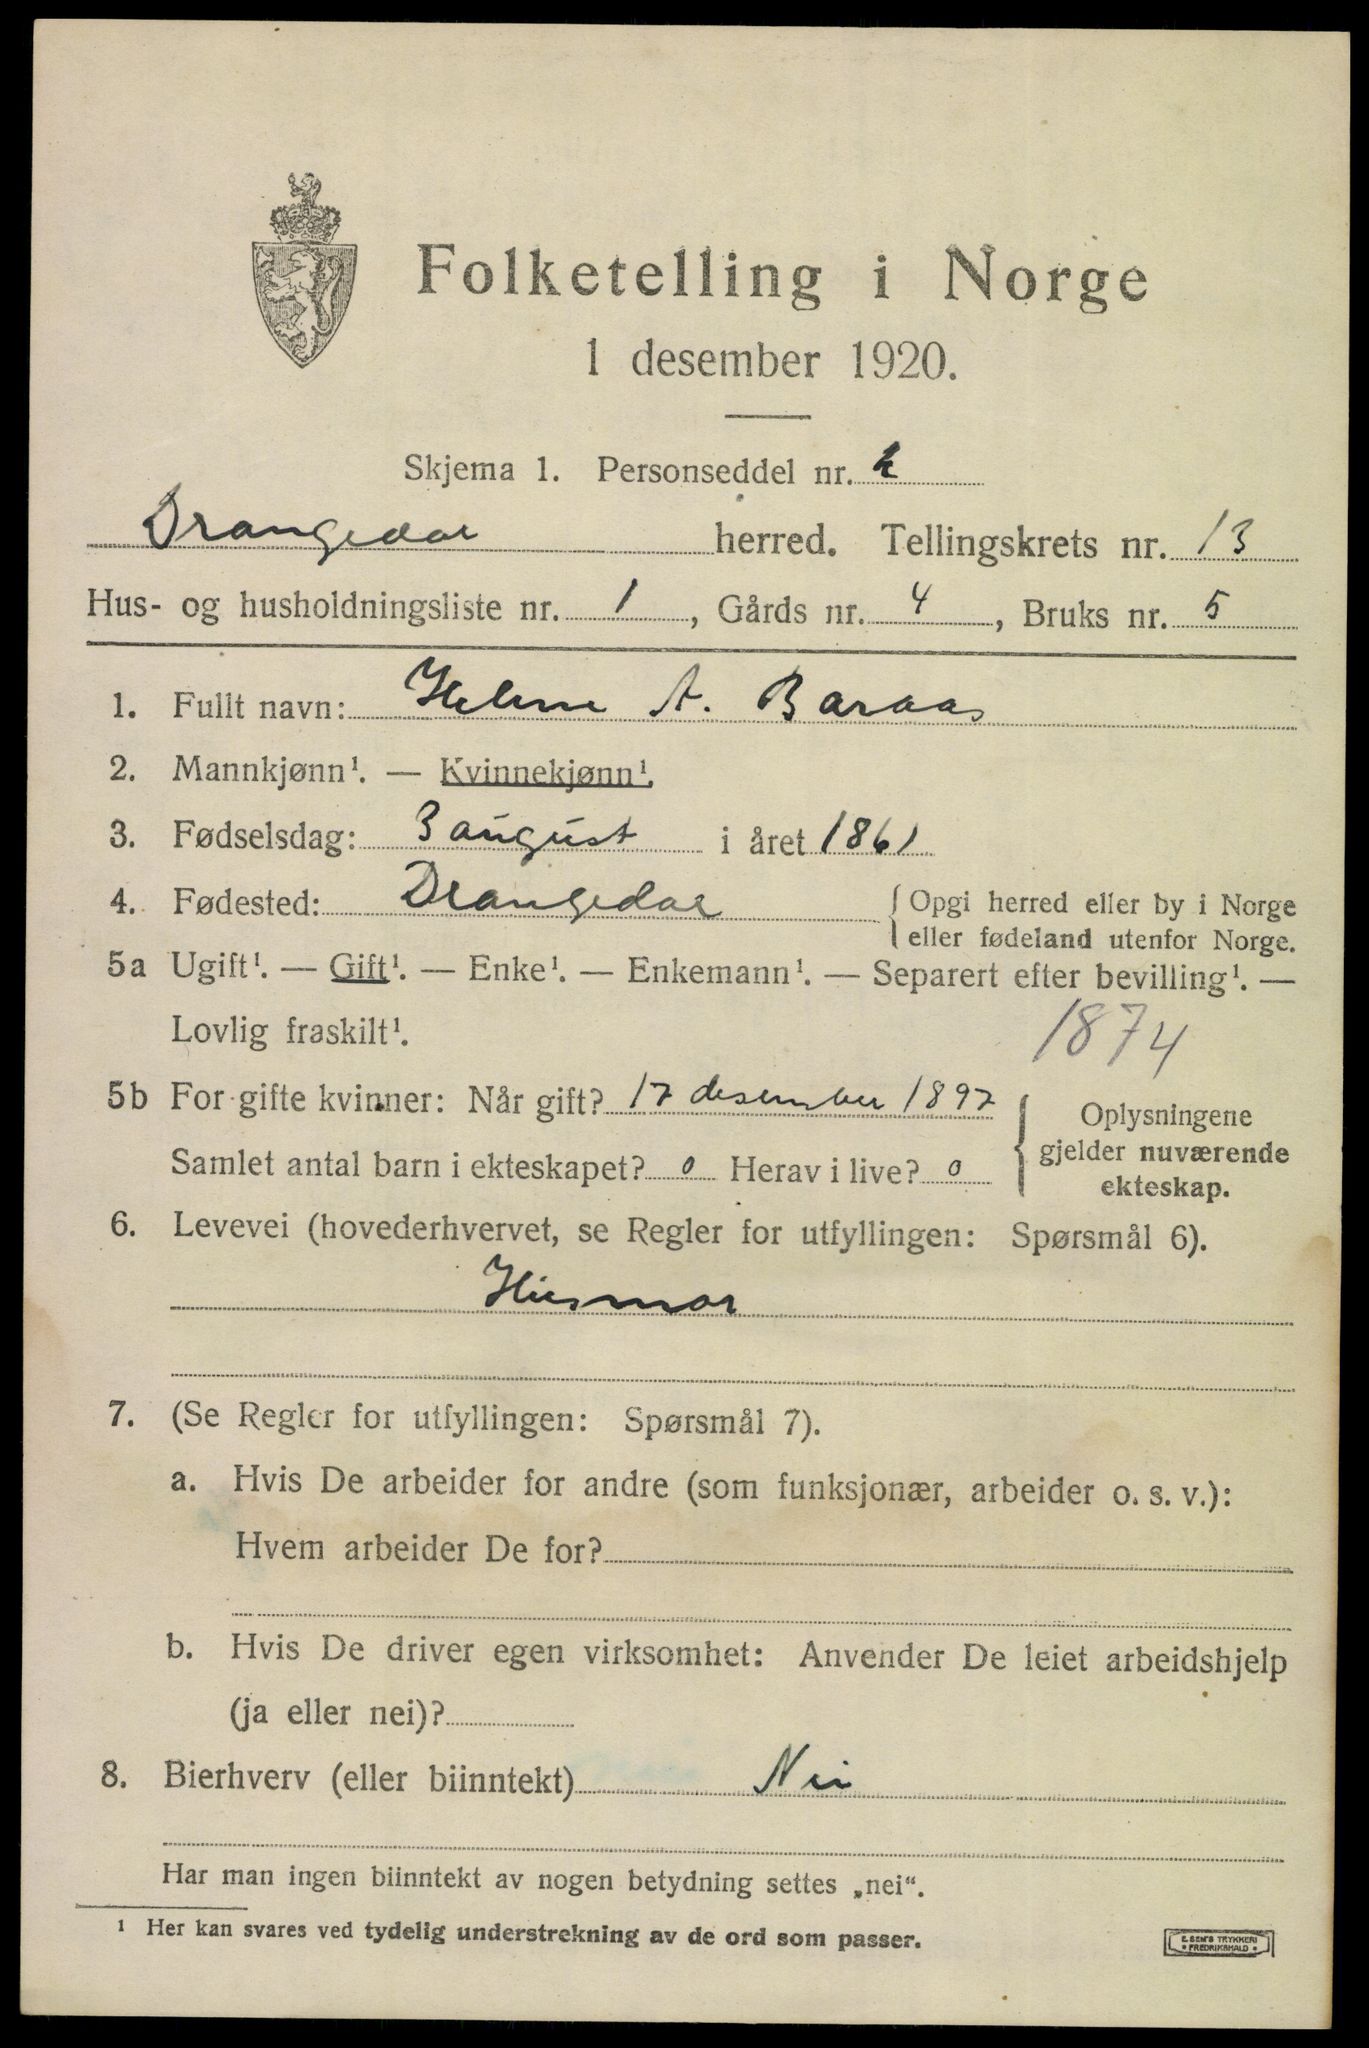 Folketelling i Norge
1 desember 1920.
Skjema 1. Personseddel nr. 2
Drangedal herred. Tellingskrets nr. 13
Hus- og husholdningsliste nr. 1, Gårds nr. 4, Bruks nr. 5
1. Fullt navn: Helene A. Baraas
2. Mannkjønn¹. — Kvinnekjønn¹.
3. Fødselsdag: 3 august i året 1861
4. Fødested: Drangedal { Opgi herred eller by i Norge
eller fødeland utenfor Norge.
5a Ugift¹. — Gift¹. — Enke¹. — Enkemann¹. — Separert efter bevilling¹. —
Lovlig fraskilt¹. 1874
5b For gifte kvinner: Når gift? 17 desember 1897 { Oplysningene
gjelder nuværende
ekteskap.
Samlet antal barn i ekteskapet? 0 Herav i live? 0
6. Levevei (hovederhvervet, se Regler for utfyllingen: Spørsmål 6).
Husmor
7. (Se Regler for utfyllingen: Spørsmål 7).
a. Hvis De arbeider for andre (som funksjonær, arbeider o. s. v.):
Hvem arbeider De for?
b. Hvis De driver egen virksomhet: Anvender De leiet arbeidshjelp
(ja eller nei)?
8. Bierhverv (eller biinntekt) Nei
Har man ingen biinntekt av nogen betydning settes „nei“.
¹ Her kan svares ved tydelig understrekning av de ord som passer.
E. SEM'S TRYKKERI
FREDRIKSHALD